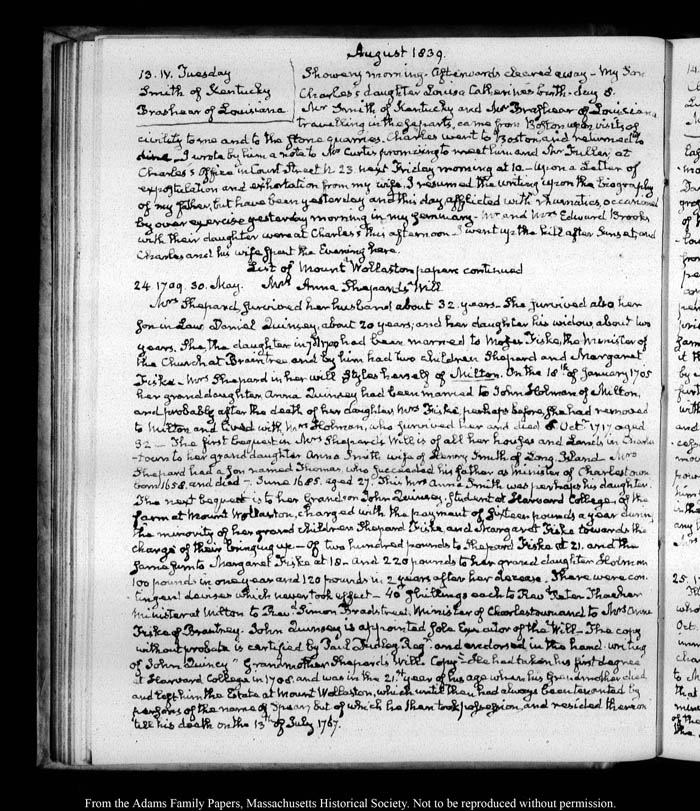 August 1839.
13. IV. Tuesday
Smith of Kentucky
Brashear of Louisiana
Showery morning. Afterwards cleared away - My Son
Charles's daughter Louisa Catherine's birth-day 8.
Mr Smith of Kentucky and Mr Brashear of Louisiana
travelling in these parts, came from Boston upon visits of
civility to me and to the stone quarries. Charles went to Boston and returned to
dine. I wrote by him a note to Mr Curtis promising to meet him and Mr Fuller, at
Charles's Office in Court Street N. 23 next Friday morning at 10 - Upon a Letter of
expostulation and exhortation from my wife, I resumed the writing upon the biography
of my father, but have been yesterday and this day afflicted with rhumatics, occasioned
by over exercise yesterday morning in my Seminary - Mr and Mrs Edward Brooks
with their daughter were at Charles's this afternoon - I went up the hill after Sunset, and
Charles and his wife spent the Evening here.
List of Mount Wollaston papers continued
24 1709. 30. May. Mrs Anna Shepard's Will
Mrs Shepard, survived her husband about 32 years - She survived also her
Son in Law Daniel Quinsey, about 20 years, and her daughter his widow about two
years. She, the daughter in had been married to Moses Fiske, the Minister of
the Church at Braintree and by him had two children Shepard and Margaret
Fiske - Mrs Shepard in her will styles herself of Milton. On the 18th of January 1705
her grand daughter Anna Quinsey had been married to John Holman of Milton,
and probably after the death of her daughter Mrs Fiske, perhaps before, she had removed
to Milton and lived with Mrs Holman, who survived her and died Octr 1717 aged
32 - The first bequest in Mrs Shepard's Will is of all her houses and Lands in Charles
-town to her grand daughter Anna Smith wife of Henry Smith of Long Island - Mrs
Shepard had a son named Thomas, who succeeded his father as minister of Charlestown
born 1658, and died 7. June 1685. aged 27. This Mrs Anna Smith was perhaps his daughter.
The next bequest is to her Grandson John Quinsey, Student at Harvard College, of the
farm at Mount Wollaston, charged with the payment of fifteen pounds a year during
the minority of her grand children Shepard Fiske and Margaret Fiske towards the
charge of their bringing up - of two hundred pounds to Shepard Fiske at 21. and the
same sum to Margaret Fiske at 18 - and 220 pounds to her grand daughter Holman
100 pounds in one year and 120 pounds in 2 years after her decease. There were con-
tingent devises which never took effect - 40 shillings each to Revd Peter Thacher
Minister at Milton to Revd Simon Bradstreet, Minister of Charlestown and to Mrs Anne
Fiske of Braintrey. John Quinsey is appointed sole Executor of the Will - The copy
without probate is certified by Paul Dudley Regr. and endorsed in the hand-writing
of John Quincy "Grandmother Shepard's Will. Copy" He had taken his first degree
at Harvard College in 1708. and was in the 21st year of his age when his Grandmother died
and left him the Estate at Mount Wollaston, which until then had always been tenanted by
persons of the name of Spear, but of which he then took possession, and resided thereon
till his death on the 13th of July 1767.
From the Adams Family Papers, Massachusetts Historical Society. Not to be reproduced without permission.